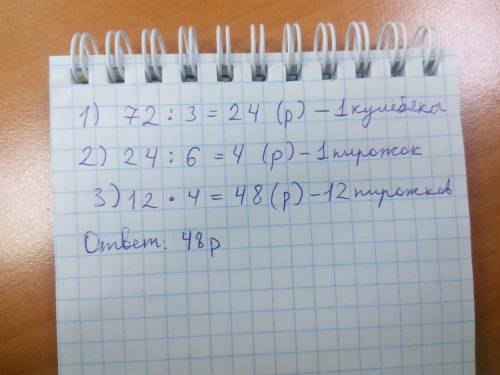 1) 72 : 3 = 24 (р) – 1 кулебяка
2) 24 : 6 = 4 (р) – 1 пирожок
3) 12 · 4 = 48 (р) – 12 пирожков
Ответ: 48р